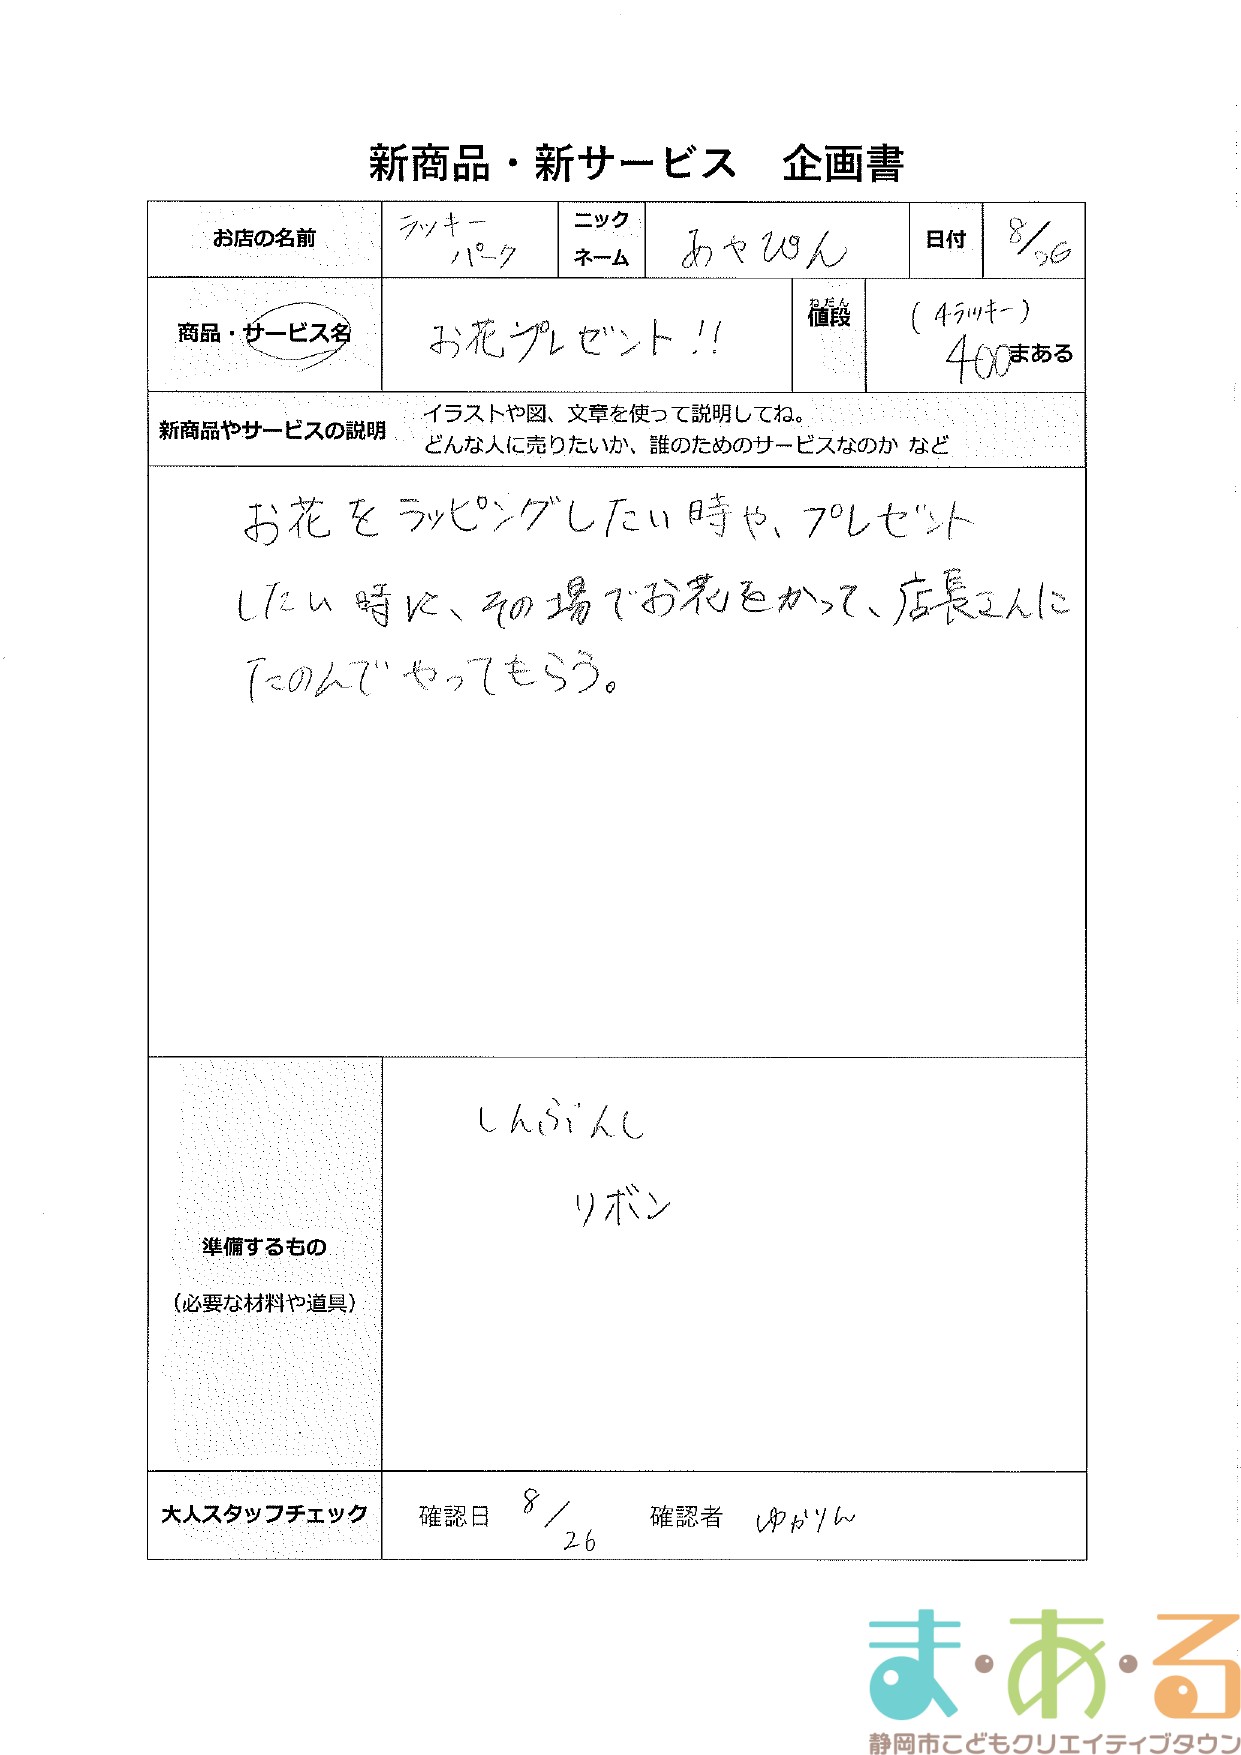 新商品・新サービス 企画書
お店の名前
ラッキー
パーク
ニック
ネーム
あやぴん
日付
8/26
商品・サービス名
お花プレゼント!!
ねだん
値段
(4ラッキー)
400まある
新商品やサービスの説明
イラストや図、文章を使って説明してね。
どんな人に売りたいか、誰のためのサービスなのか など
お花をラッピングしたい時や、プレゼント
したい時に、その場でお花をかって、店長さんに
たのんでやってもらう。
準備するもの
(必要な材料や道具)
しんぶんし
リボン
大人スタッフチェック
確認日 8/26 確認者 ゆかりん
ま・あ・る
静岡市こどもクリエイティブタウン